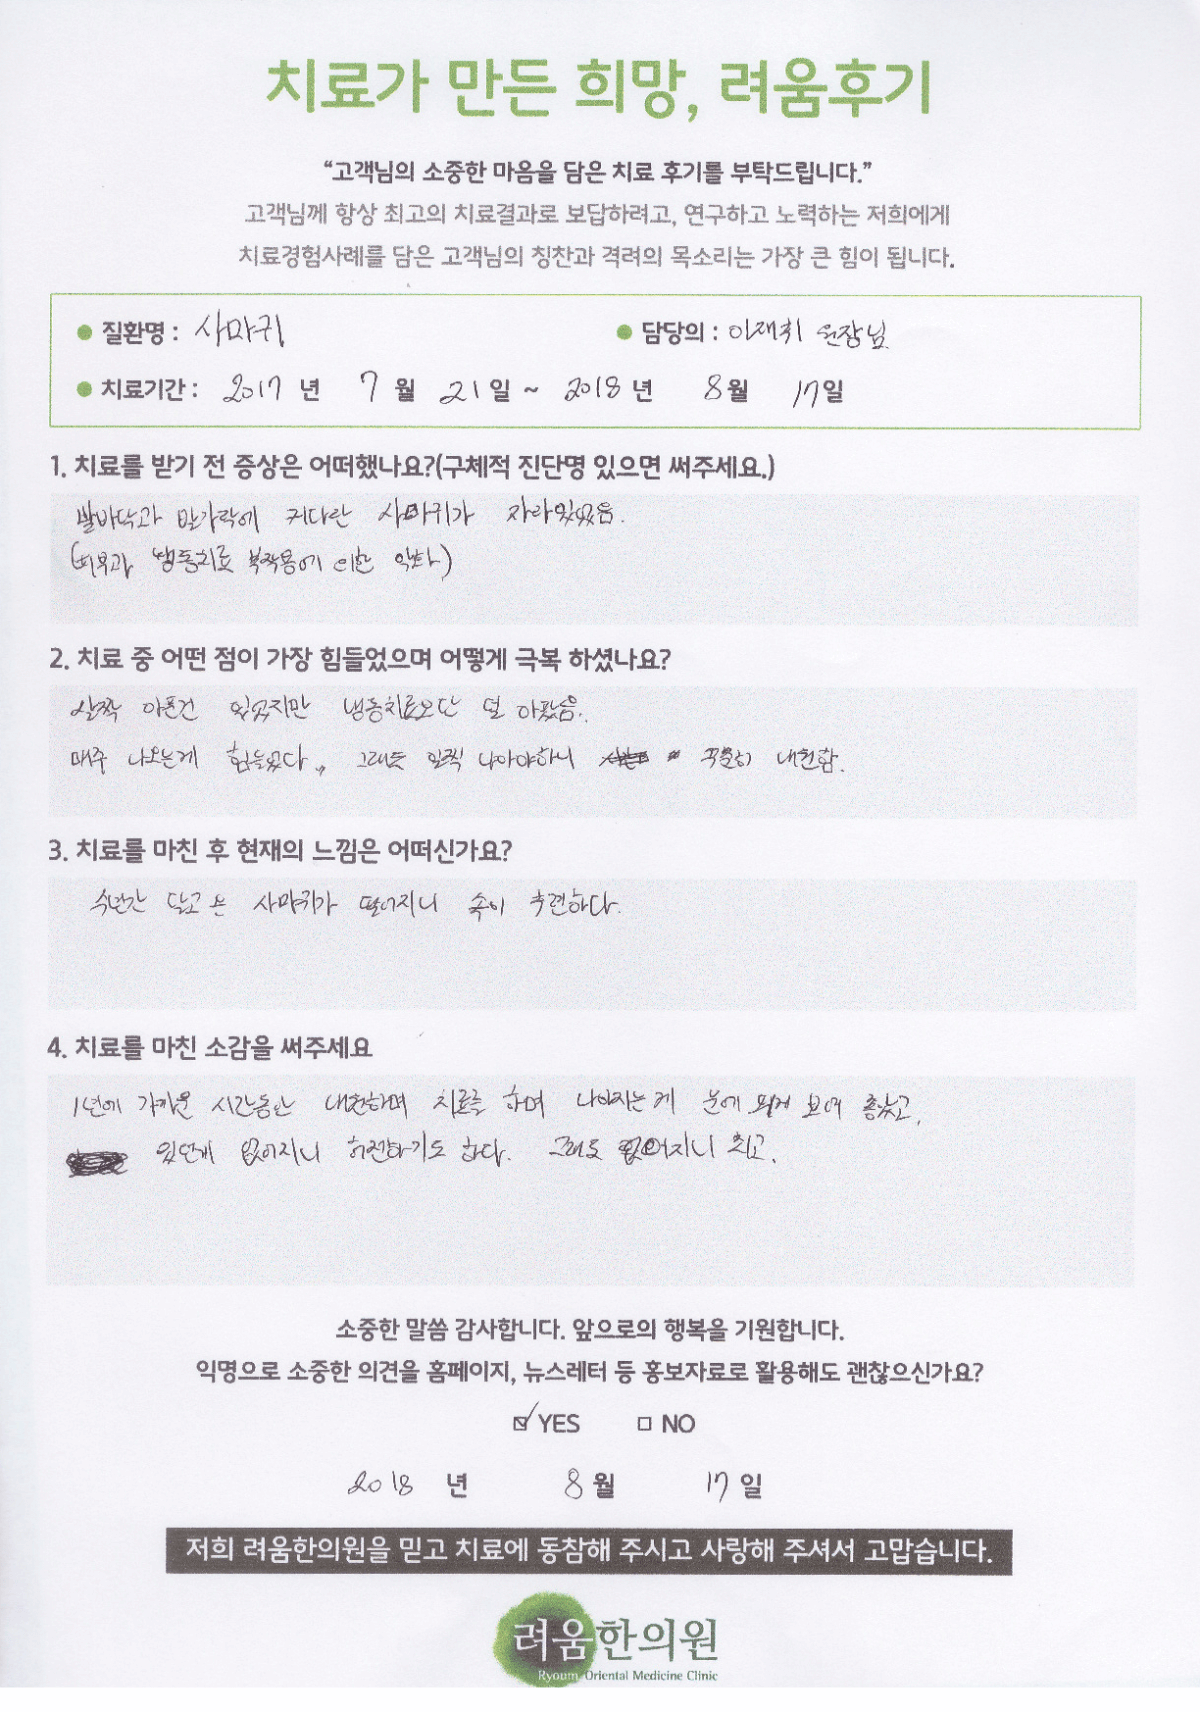 치료가 만든 희망, 려움후기
“고객님의 소중한 마음을 담은 치료 후기를 부탁드립니다.”
고객님께 항상 최고의 치료결과로 보답하려고, 연구하고 노력하는 저희에게
치료경험사례를 담은 고객님의 칭찬과 격려의 목소리는 가장 큰 힘이 됩니다.
● 질환명 : 사마귀 ● 담당의 : 이재휘 원장님
● 치료기간 : 2017 년 7 월 21 일 ~ 2018 년 8 월 17 일
1. 치료를 받기 전 증상은 어떠했나요?(구체적 진단명 있으면 써주세요.)
발바닥과 발가락에 커다란 사마귀가 자라있었음.
(피부과 냉동치료 부작용에 의한 악화)
2. 치료 중 어떤 점이 가장 힘들었으며 어떻게 극복 하셨나요?
살짝 아픈건 있었지만 냉동치료보단 덜 아팠음.
매주 나오는게 힘들었다. 그래도 일찍 나아야하니 꾸준히 내원함.
3. 치료를 마친 후 현재의 느낌은 어떠신가요?
수년간 달고 산 사마귀가 떨어지니 속이 후련하다.
4. 치료를 마친 소감을 써주세요
1년에 가까운 시간동안 내원하며 치료를 하며 나아지는게 눈에 띄게 보여 좋았고,
있던게 없어지니 허전하기도 하다. 그래도 없어지니 최고.
소중한 말씀 감사합니다. 앞으로의 행복을 기원합니다.
익명으로 소중한 의견을 홈페이지, 뉴스레터 등 홍보자료로 활용해도 괜찮으신가요?
☑ YES □ NO
2018 년 8 월 17 일
저희 려움한의원을 믿고 치료에 동참해 주시고 사랑해 주셔서 고맙습니다.
려움한의원
Ryoum Oriental Medicine Clinic